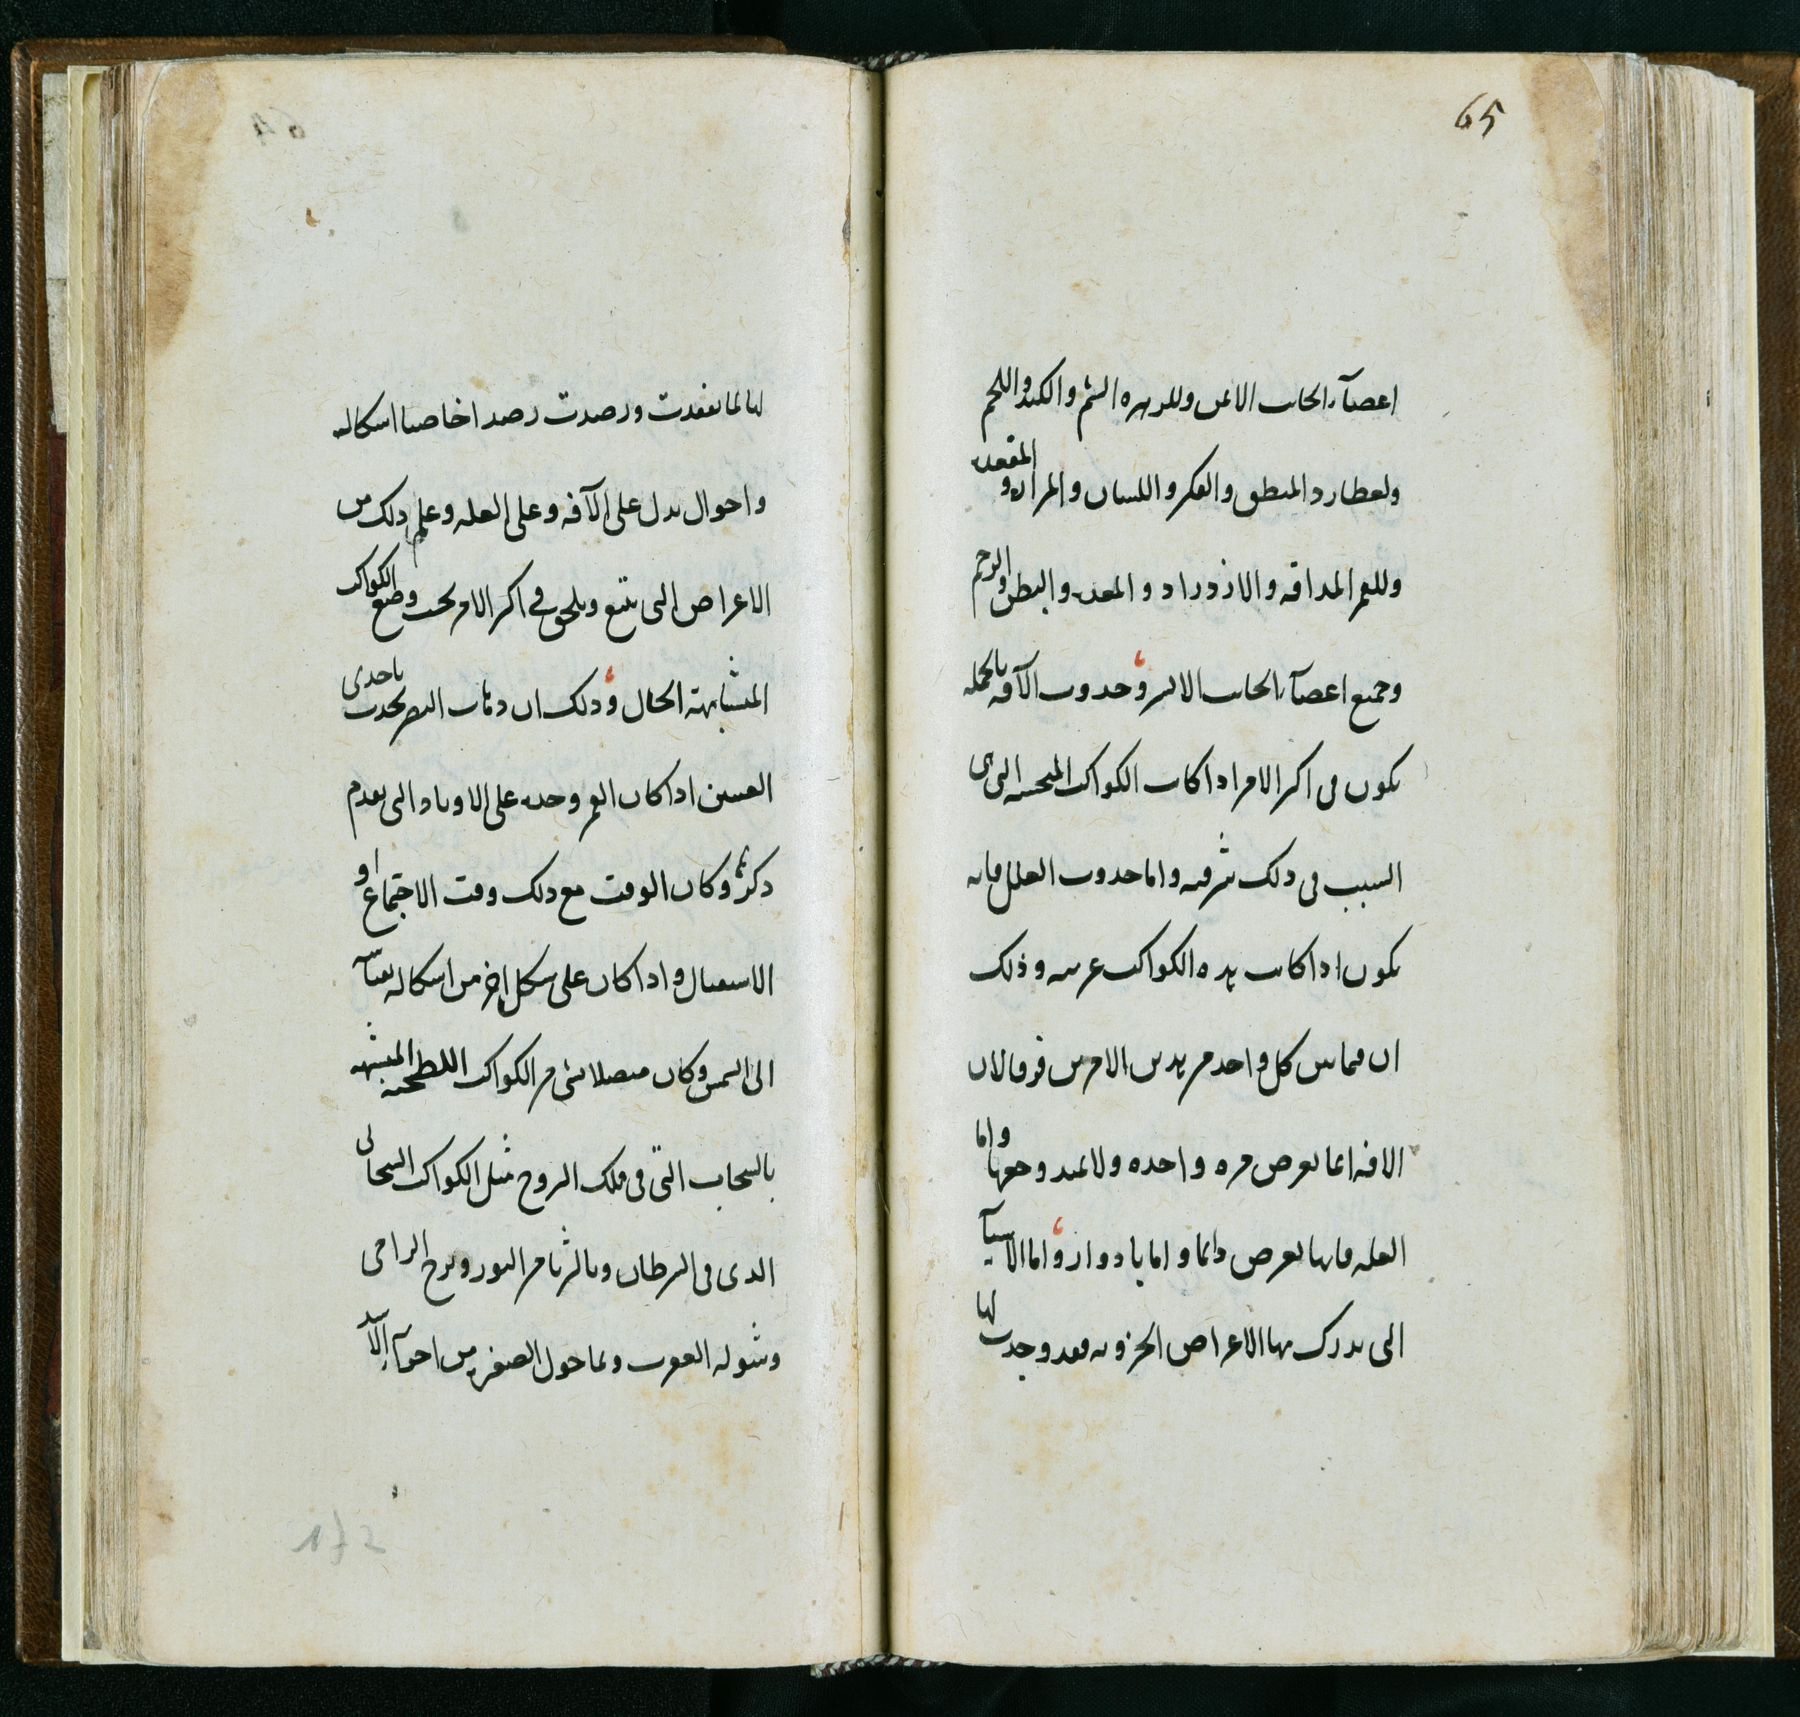 65
اعضآء الجانب الايمن وللزهره الشم والكبد واللحم
ولعطارد المنطق والفكر واللسان والمراره والمقعده
وللقمر المذاقه والازدراد والمعده والبطن والرحم
وجميع اعضآء الجانب الايسر وحدوث الآفه بالجمله
يكون فى اكثر الامر اذا كانت الكواكب المنحسه التى هى
السبب فى ذلك شرقيه واما حدوث العلل فانه
يكون اذا كانت هذه الكواكب غربيه وذلك
ان فيما بين كل واحد من هذين الامرين فرقا لان
الافه انما يعرض مره واحده ولا يمتد وجعها واما
العله فانها يعرض دائما واما بادوار واما الاشيآء
التى يدرك بها الاعراض الجزويه فقد وجدت لها
لها لما تفقدت ورصدت رصدا خاصيا اشكال
واحوال يدل على الآفه وعلى العله وعلم ذلك من
الاعراض التى يتبع ويلحق فى اكثر الامر بحسب وضع الكواكب
المتشابهة الحال وذلك ان ذهاب البصر يحدث باحدى
العينين اذا كان القمر وحده على الاوتاد التى يقدم
ذكرها وكان الوقت مع ذلك وقت الاجتماع او
الاستقبال واذا كان على شكل اخر من اشكاله بقياس
الى الشمس وكان متصلا بشئ من الكواكب اللطخيه المشبهه
بالسحاب التى فى فلك البروج مثل الكواكب السحابى
الذى فى السرطان وبالثريا من الثور وبزج الرامى
وشوله العقرب وبما حول الضفيره من اجزآء الاسد
172